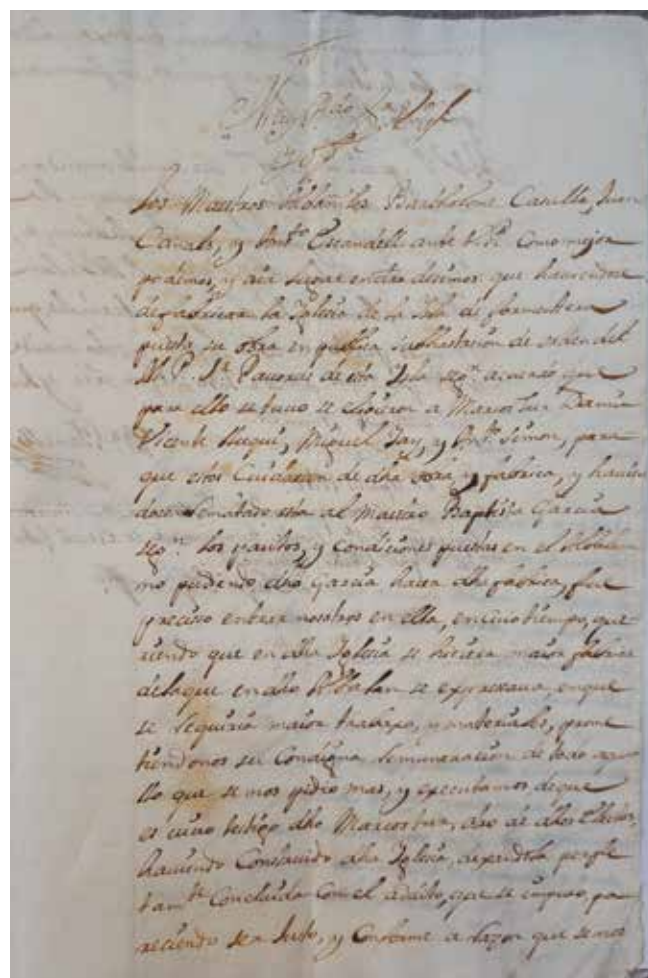 Los Maestros Albañiles Bartholome Casella, Juan
Canals, y Ant.º Escandell ante V.S. Como mejor
podemos, y aia lugar en dro decimos: que haviendose
de fabricar la Iglesia de la Isla de formentera
puesta su obra en publica subhastasion de orden del
M. P. S.r Pavorde de esta Isla seg.n acuerdo que
para ello se tuvo se elixieron a Marcos Tur Damia
Vicente Lluqui, Miquel Jay, y Ant.º Simon, para
que estos Cuidasen de dha obra, y fabrica, y havien
dose Rematado esta al Maestro Baptista Garcia
seg.n los pautos, y Condiciones puestas en el Albalan
no pudiendo dho Garcia hacer dha fabrica, fue
preciso entrar nosotros en ella, en cuio tiempo, que
riendo que en dha Iglesia se hiciera maior fabrica
de la que en dho Albalan se expresava, en que
se Requiria maior travajo, y materiales, prome
tiendonos su Condigna Remuneracion de todo aque
llo que se mos pidio mas, y executamos de que
es buen testigo dho Marcos tur, uno de dhos Electos,
haviendo Construido dha Iglesia, dexandola perfe
tam.te Concluida Con el adito, que se impuso, pa
reciendo ser Justo, y Conforme a Razon que se mos